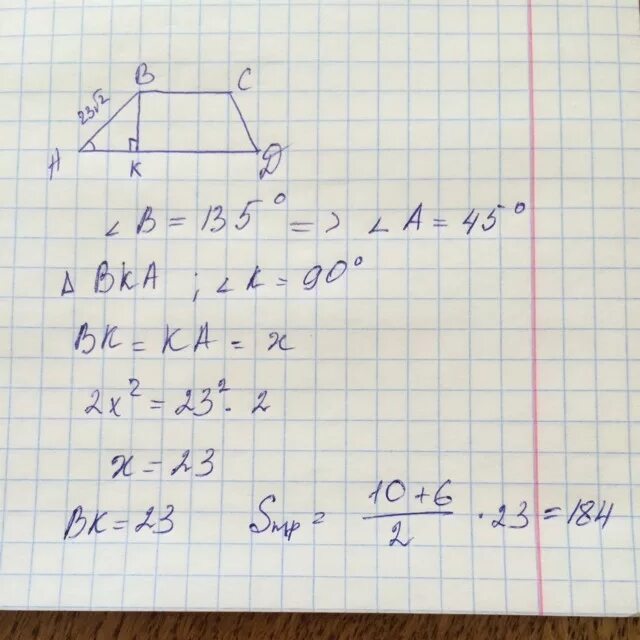 B C
23√2
A K D
∠ B = 135° => ∠ A = 45°
Δ BKA ; ∠ K = 90°
BK = KA = x
2x² = 23² · 2
x = 23
BK = 23 Sтр = (10+6)/2 · 23 = 184